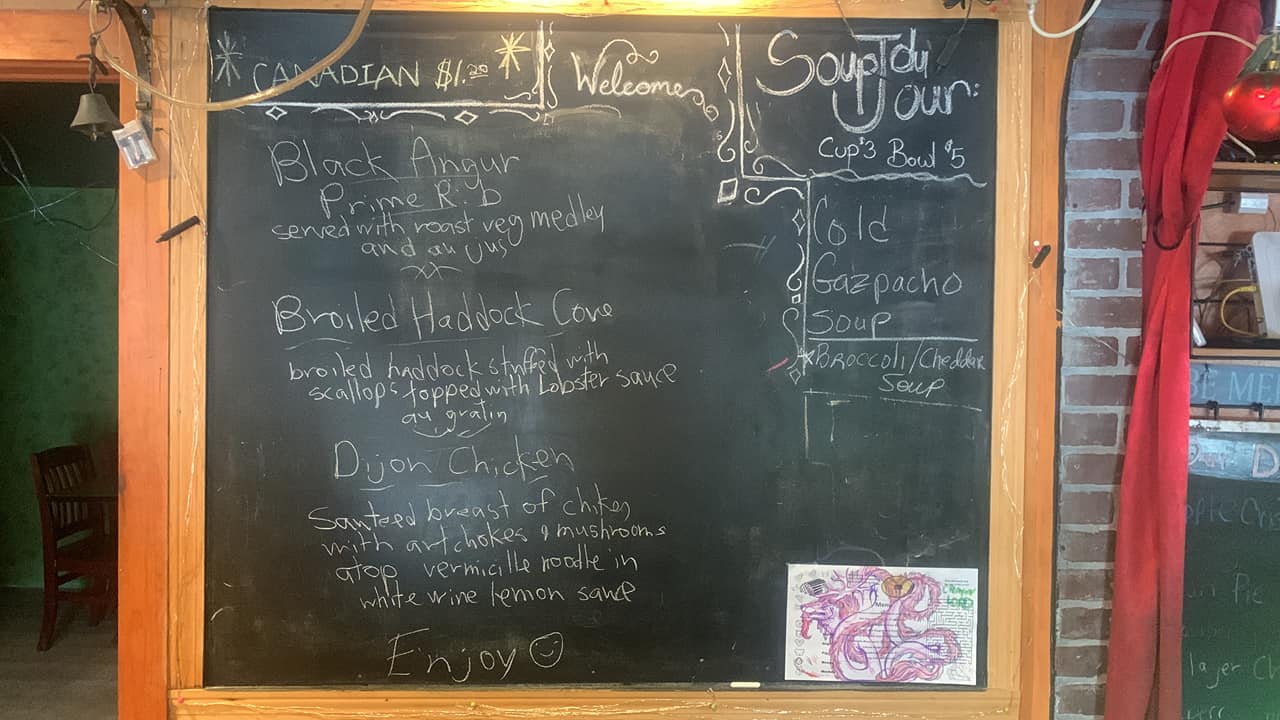 CANADIAN $1.20
Welcome
Soup Du
Jour:
Cup $3 Bowl $5
Black Angur
Prime Rib
served with roast veg medley
and au jus
Broiled Haddock Cove
broiled haddock stuffed with
scallops topped with Lobster sauce
au gratin
Dijon Chicken
Sauteed breast of chiken
with artchokes & mushrooms
atop vermicille noodle in
white wine lemon sauce
Enjoy
Cold
Gazpacho
Soup
Broccoli/Cheddar
Soup
BE ME
D
Pie
layer C